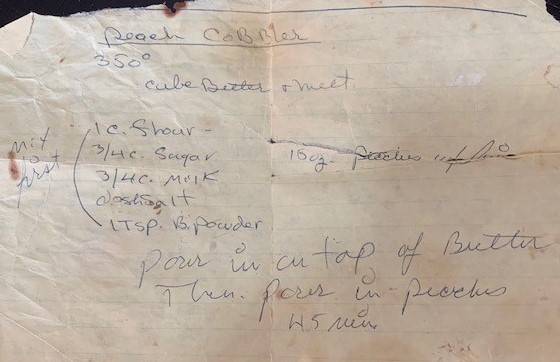 Peach CoBBler
350°
cube Butter & melt
mix
first
1 c. flour -
3/4 c. Sugar
3/4 c. Milk
dash salt
1 Tsp. B. powder
16 oz. peaches
pour in on top of Butter
Then. pour in peaches
45 min